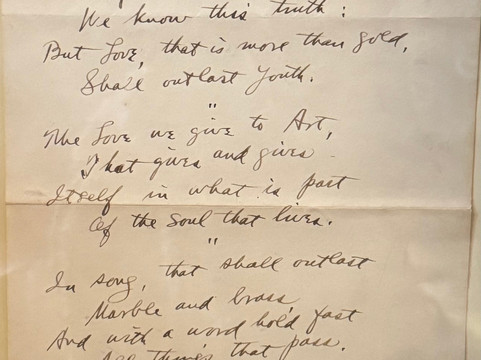 We know this truth:
But Love, that is more than gold,
Shall outlast Youth.
"
The Love we give to Art,
That gives and gives
Itself in what is part
Of the Soul that lives.
"
In song, that shall outlast
Marble and brass
And with a word hold fast
All things that pass.